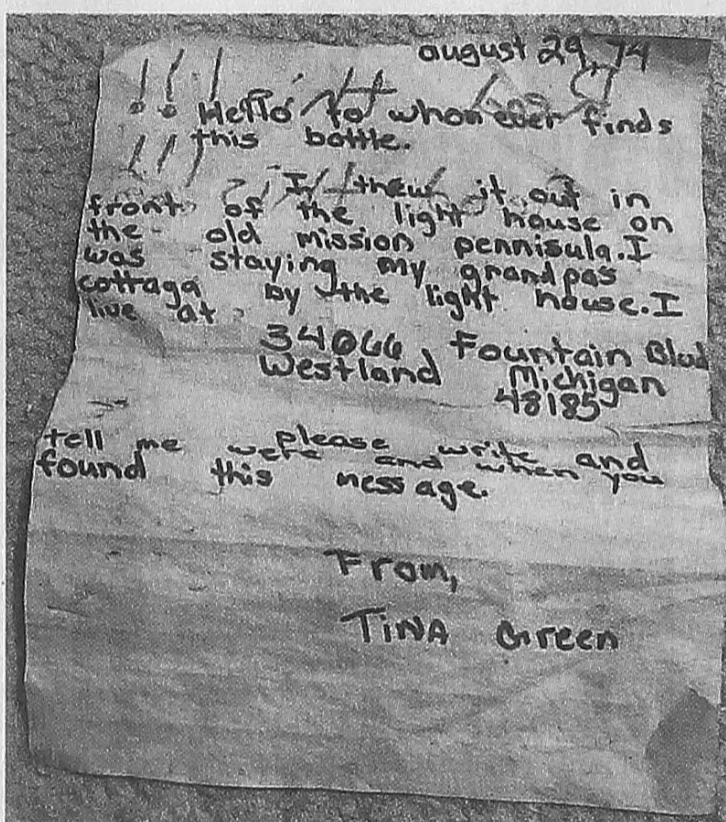 august 29, 74
!!!
Hello to whom ever finds
this bottle.
!!!
I threw it out in
front of the light house on
the old mission pennisula. I
was staying my grandpas
cottaga by the light house. I
live at
34066 Fountain Blvd
Westland Michigan
48185
please write and
tell me were and when you
found this message.
From,
TiNA Green